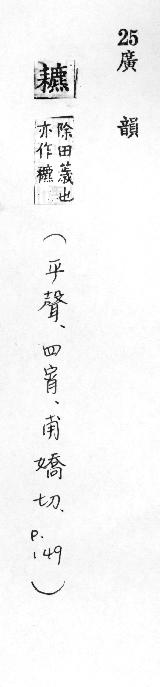 25廣韻
䎱
除田薉也
亦作穮
(平聲、四宵、甫嬌切、p.149)